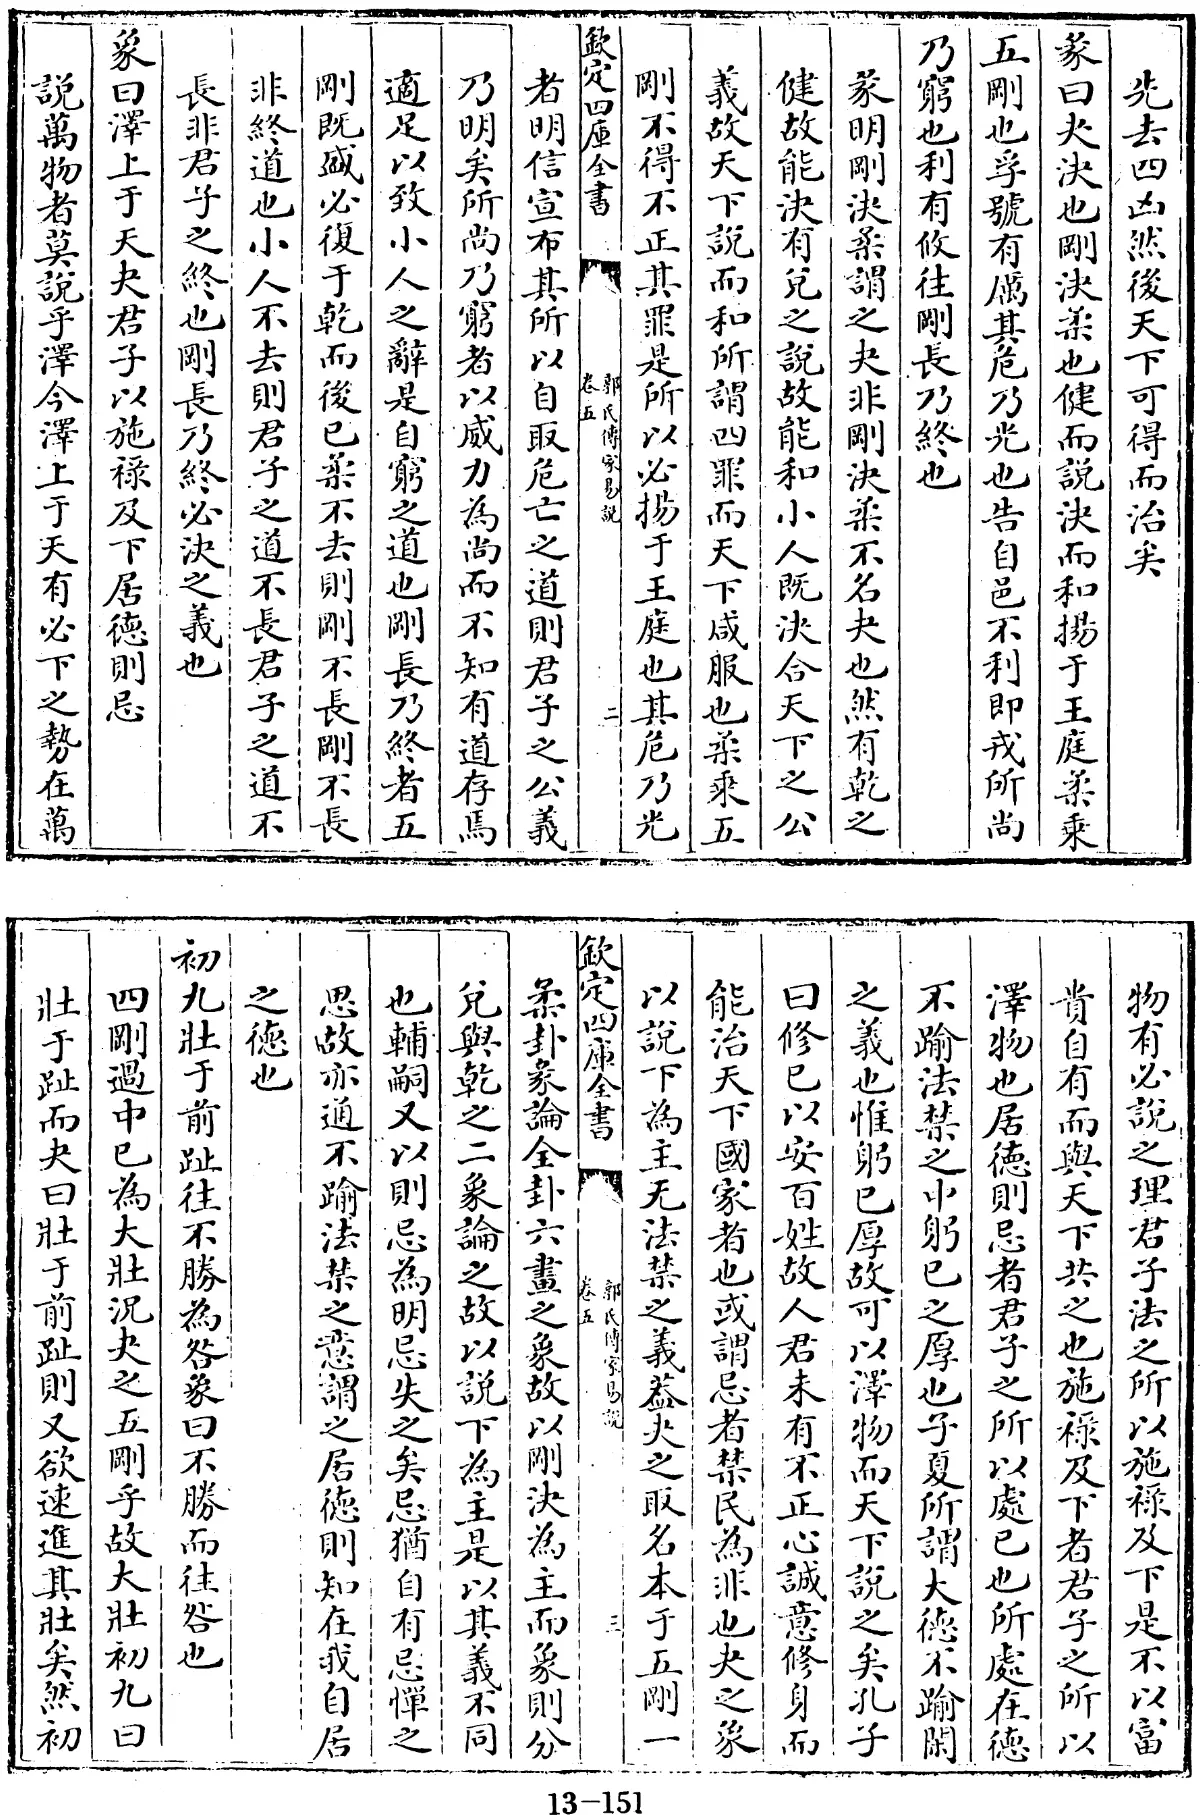 先去四凶然後天下可得而治矣
彖曰夬決也剛決柔也健而說決而和揚于王庭柔乘
五剛也孚號有厲其危乃光也告自邑不利即戎所尚
乃窮也利有攸往剛長乃終也
彖明剛決柔謂之夬非剛決柔不名夬也然有乾之
健故能決有兌之說故能和小人既決合天下之公
義故天下說而和所謂四罪而天下咸服也柔乘五
剛不得不正其罪是所以必揚于王庭也其危乃光
欽定四庫全書
郭氏傳家易說
卷五
二
者明信宣布其所以自取危亡之道則君子之公義
乃明矣所尚乃窮者以威力為尚而不知有道存焉
適足以致小人之辭是自窮之道也剛長乃終者五
剛既盛必復于乾而後已柔不去則剛不長剛不長
非終道也小人不去則君子之道不長君子之道不
長非君子之終也剛長乃終必決之義也
象曰澤上于天夬君子以施祿及下居德則忌
說萬物者莫說乎澤今澤上于天有必下之勢在萬
物有必說之理君子法之所以施祿及下是不以富
貴自有而與天下共之也施祿及下者君子之所以
澤物也居德則忌者君子之所以處已也所處在德
不踰法禁之中躬已之厚也子夏所謂大德不踰閑
之義也惟躬已厚故可以澤物而天下說之矣孔子
曰修已以安百姓故人君未有不正心誠意修身而
能治天下國家者也或謂忌者禁民為非也夬之象
以說下為主无法禁之義葢夬之取名本于五剛一
欽定四庫全書
郭氏傳家易說
卷五
三
柔卦彖論全卦六畫之象故以剛決為主而象則分
兌與乾之二象論之故以說下為主是以其義不同
也輔嗣又以則忌為明忌失之矣忌猶自有忌憚之
思故亦通不踰法禁之意謂之居德則知在我自居
之德也
初九壯于前趾往不勝為咎象曰不勝而往咎也
四剛過中已為大壯況夬之五剛乎故大壯初九曰
壯于趾而夬曰壯于前趾則又欲速進其壯矣然初
13-151